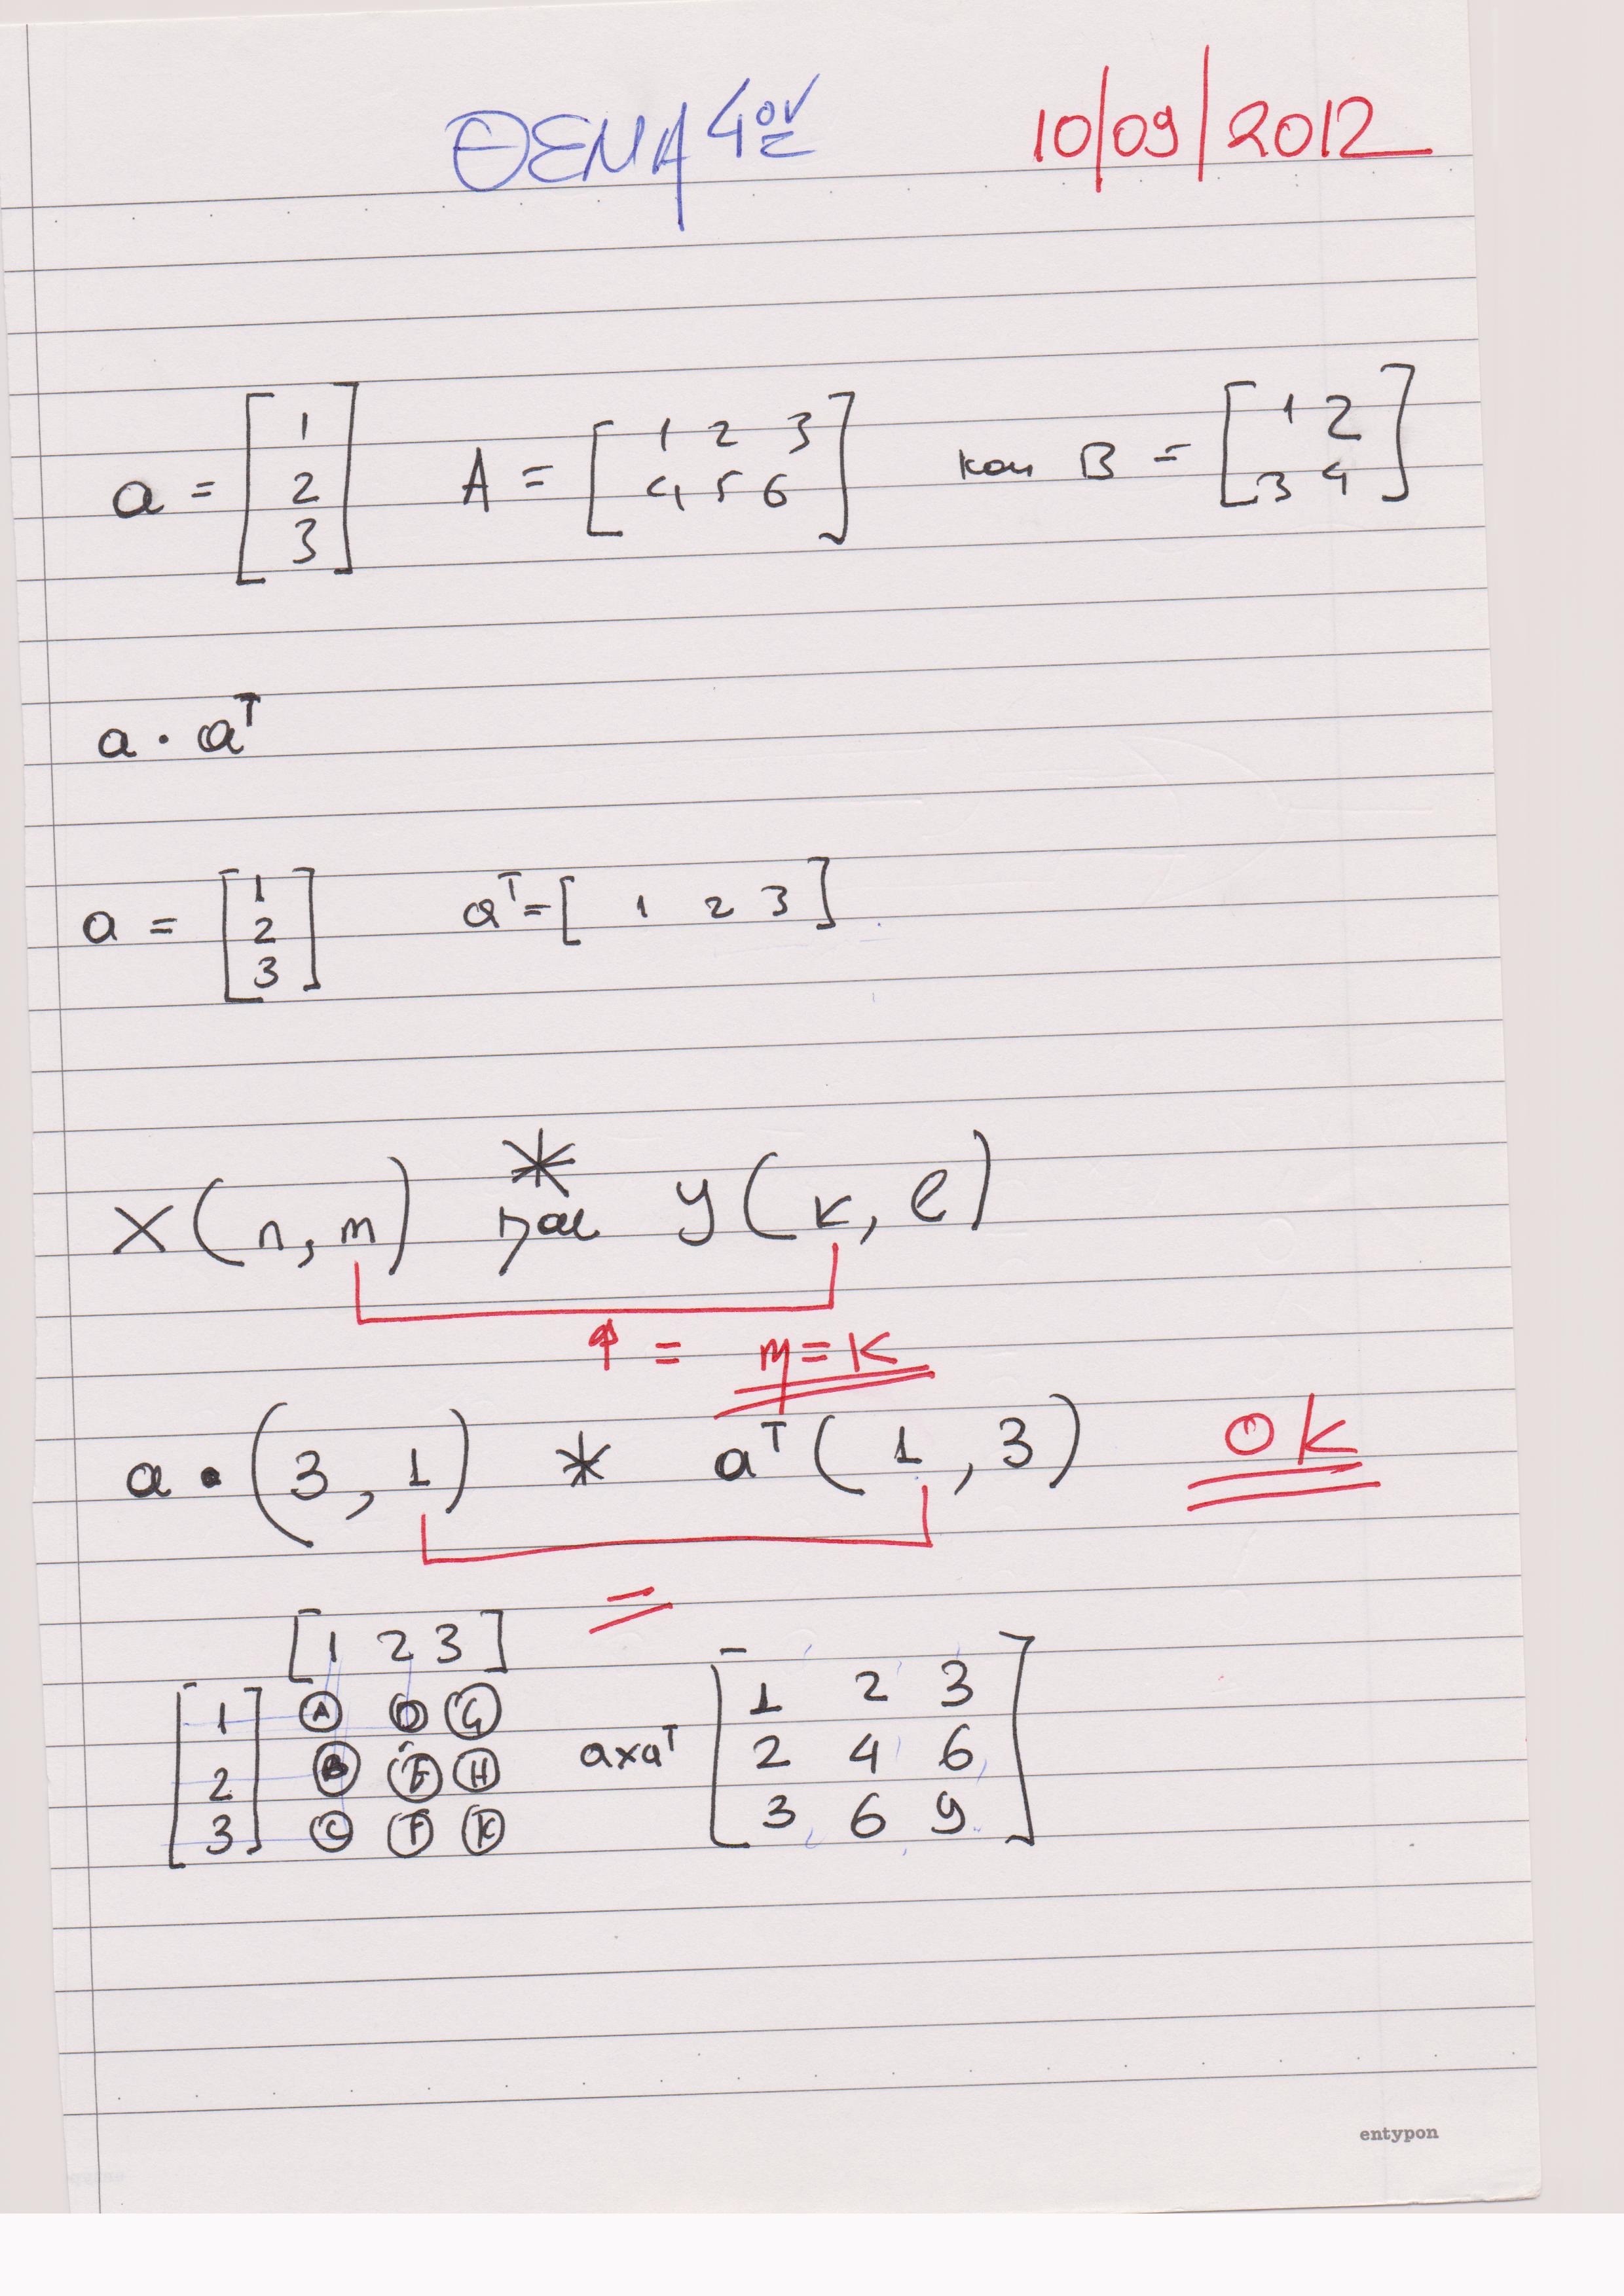 ΘΕΜΑ 4ον 10/09/2012
a = [1 2 3] A = [1 2 3 4 5 6] και B = [1 2 3 4]
a · aᵀ
a = [1 2 3] aᵀ = [1 2 3]
X(n, m) * y(k, l)
↑ = m=k
a · (3, 1) * aᵀ(1, 3) OK
=
[1 2 3]
[1 2 3] Ⓐ Ⓓ Ⓖ Ⓑ Ⓔ Ⓗ Ⓒ Ⓕ Ⓚ
a×aᵀ [1 2 3 2 4 6 3 6 9]
entypon